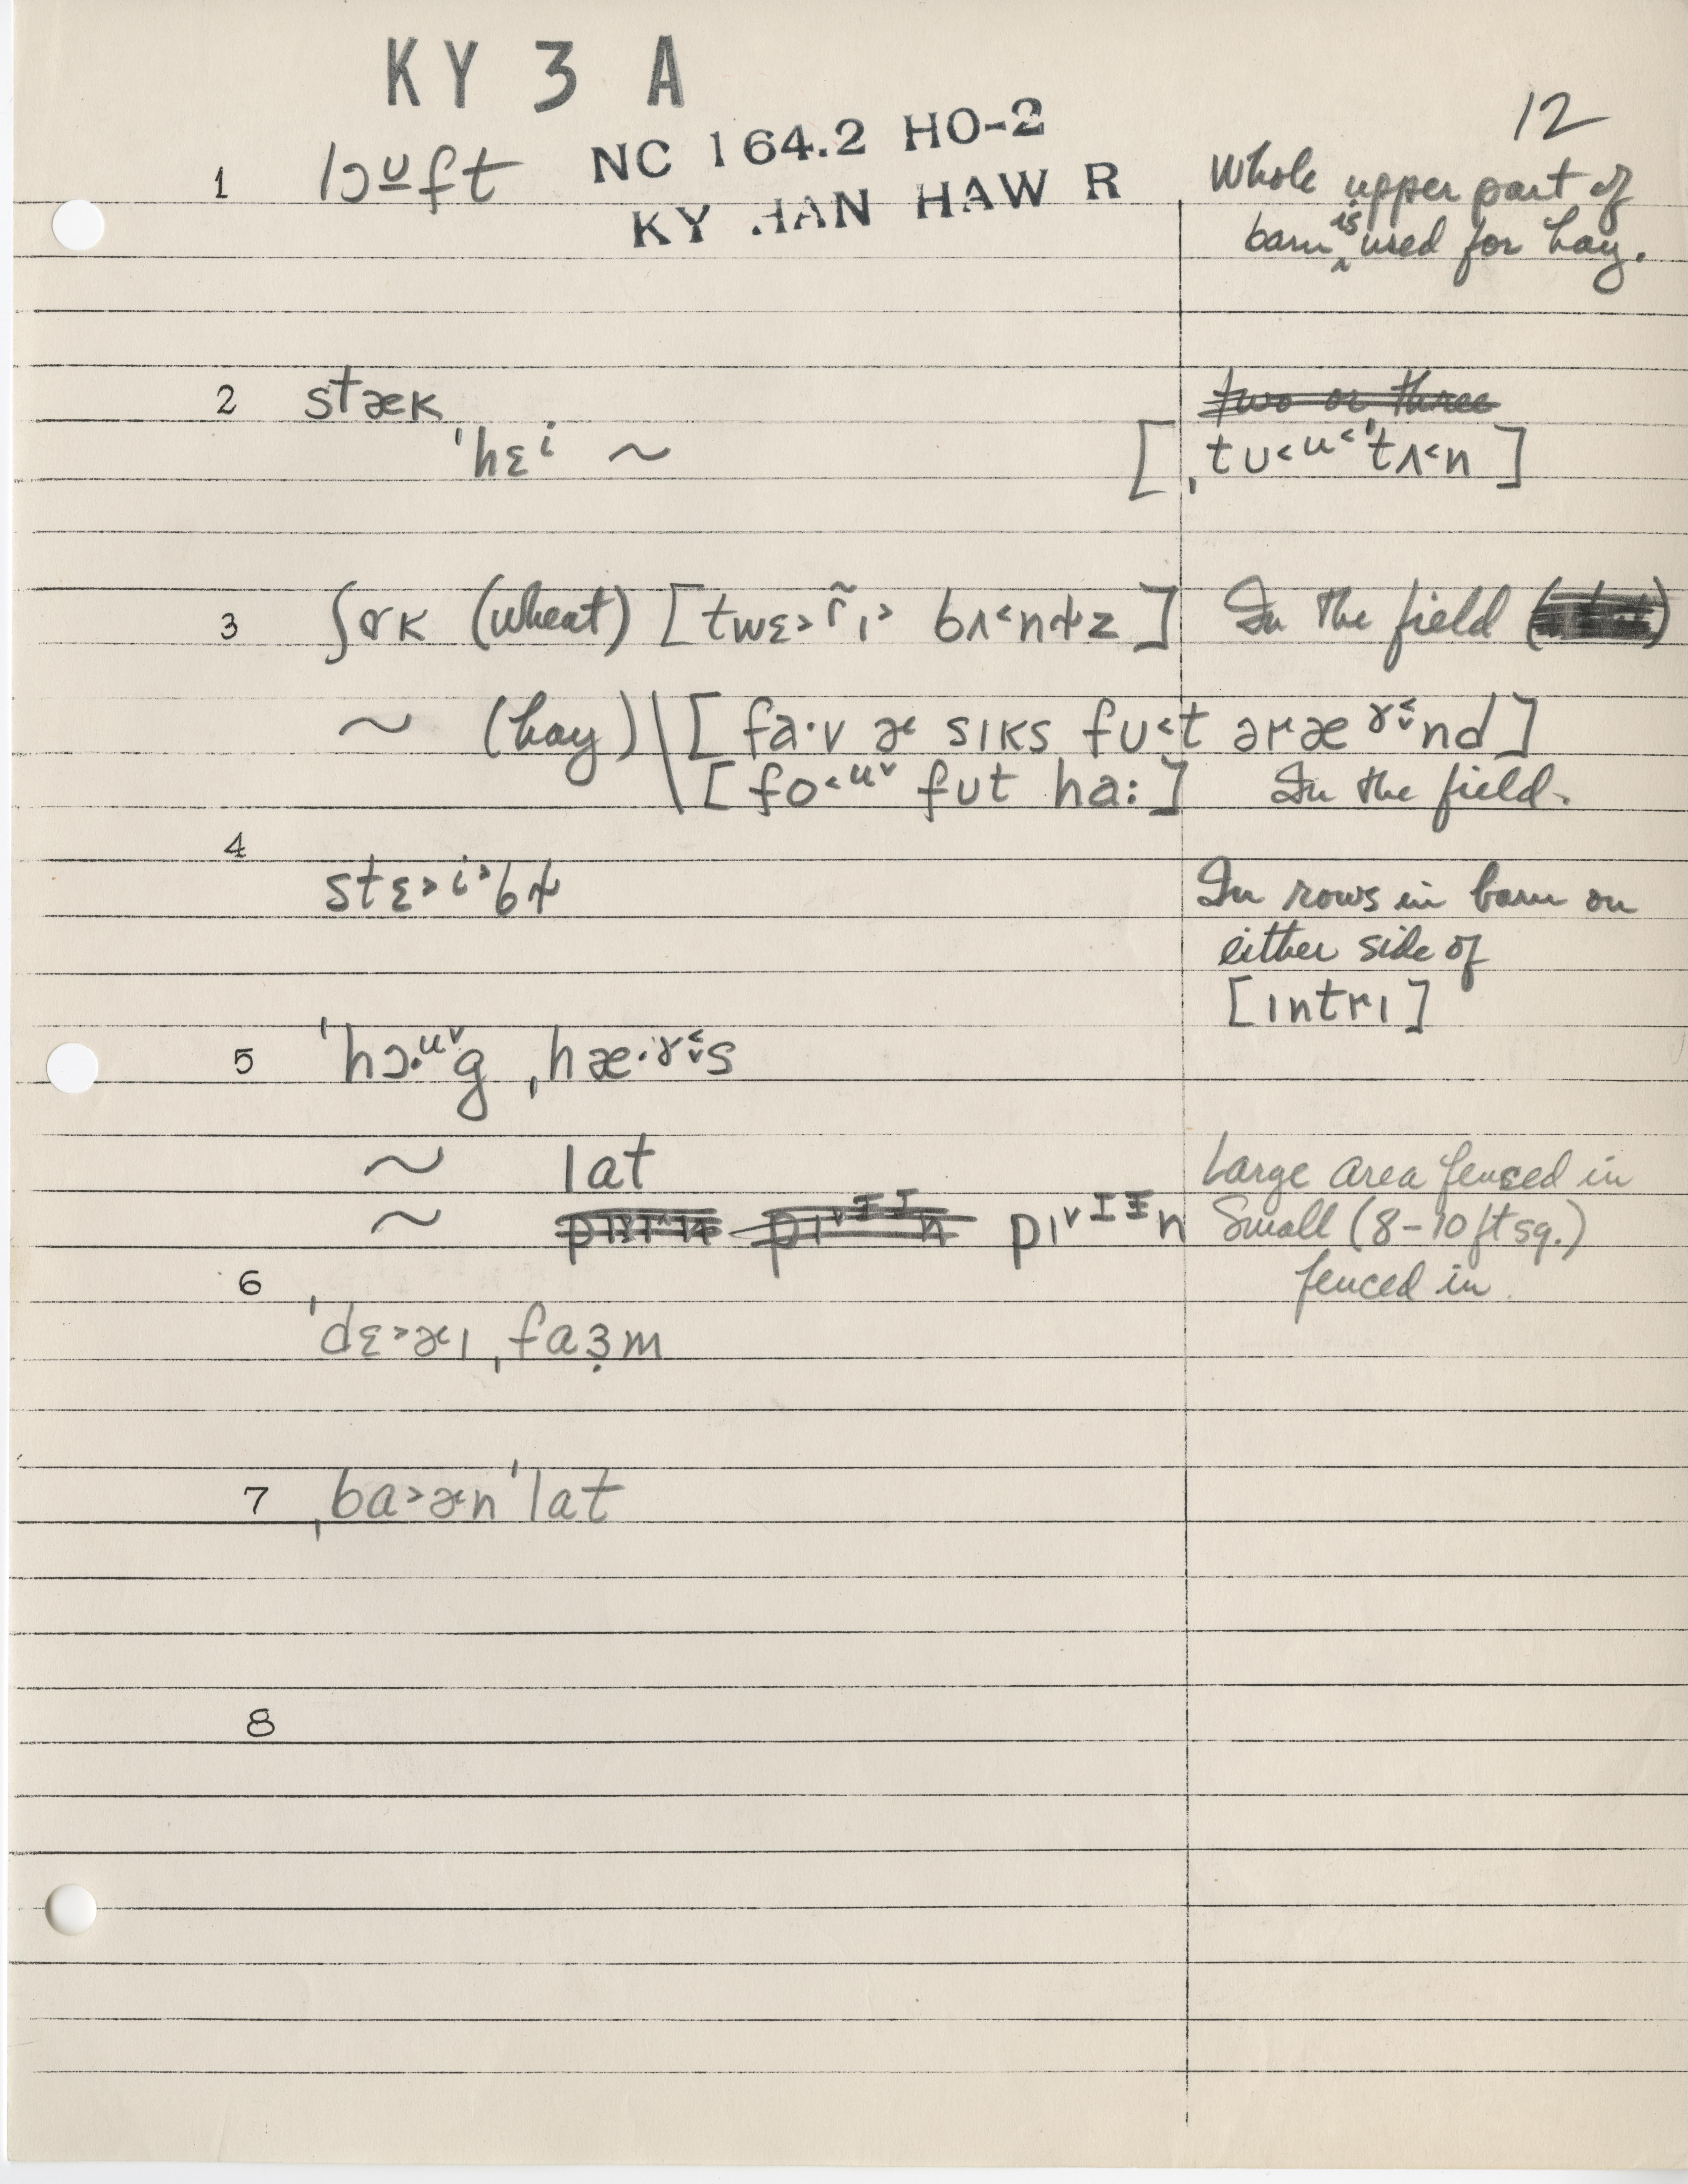 KY 3 A
12
NC 164.2 HO-2
KY HAN HAW R
1 lɔu̲ft
Whole upper part of
barn is used for hay.
2 stæk
two or three
ˈhɛⁱ ~ [ˌtʊ˂ᵘ˂ˈtʌ˂n]
3 ʃɑk (wheat) [twɛ˃r̃ɪ˃ bʌ˂ndɫz] In the field
~ (hay) [fa·v ɚ sɪks fʊ˂t əræɤnd]
[fo˂ᵘ˅ fʊt ha:] In the field.
4
stɛ˃ⁱ˃bɫ In rows in barn on
either side of
[ɪntrɪ]
5 ˈhɔ·ᵘ˅g ˌhæ·ɤs
~ lat Large area fenced in
~ pɪ˅ᴵᴵn pɪ˅ᴵᴵn Small (8-10 ft sq.)
fenced in
6
ˈdɛ˃ɚɪ ˌfaɜ̣m
7 ˌba˃ɚn ˈlat
8